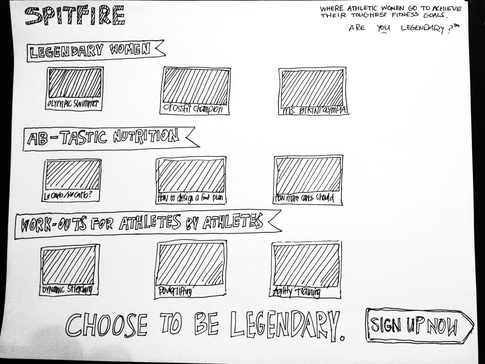 SPITFIRE
WHERE ATHLETIC WOMEN GO TO ACHIEVE
THEIR TOUGHEST FITNESS GOALS.
ARE YOU LEGENDARY?™
LEGENDARY WOMEN
OLYMPIC SWIMMER
CROSSFIT CHAMPION
MS. BIKINI OLYMPIA
AB-TASTIC NUTRITION
LO CARB/NO CARB?
HOW TO DESIGN A FOOD PLAN
HOW MANY CARBS SHOULD
WORK-OUTS FOR ATHLETES BY ATHLETES
DYNAMIC STRETCHING
POWERLIFTING
AGILITY TRAINING
CHOOSE TO BE LEGENDARY.
SIGN UP NOW